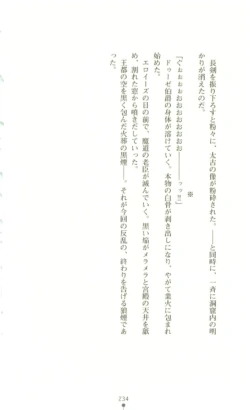 長剣を振り下ろすと共に、太古の像が粉砕された。――と同時に、一斉に洞窟内の明
かりが消えたのだ。
「ぐおおおおおおおおおおおお――――ッッッ!!」
ドゥーゼ伯爵の身体が溶けていく。本物の白骨が剥き出しになり、やがて業火に包まれ
始めた。
エロイーズの目の前で、魔道の老臣が滅んでいく。黒い焔がメラメラと宮殿の天井を舐
め、割れた窓から噴きだしていった。
王都の空を黒く包んだ火葬の黒煙――。それが今回の反乱の、終わりを告げる狼煙であ
った。
234